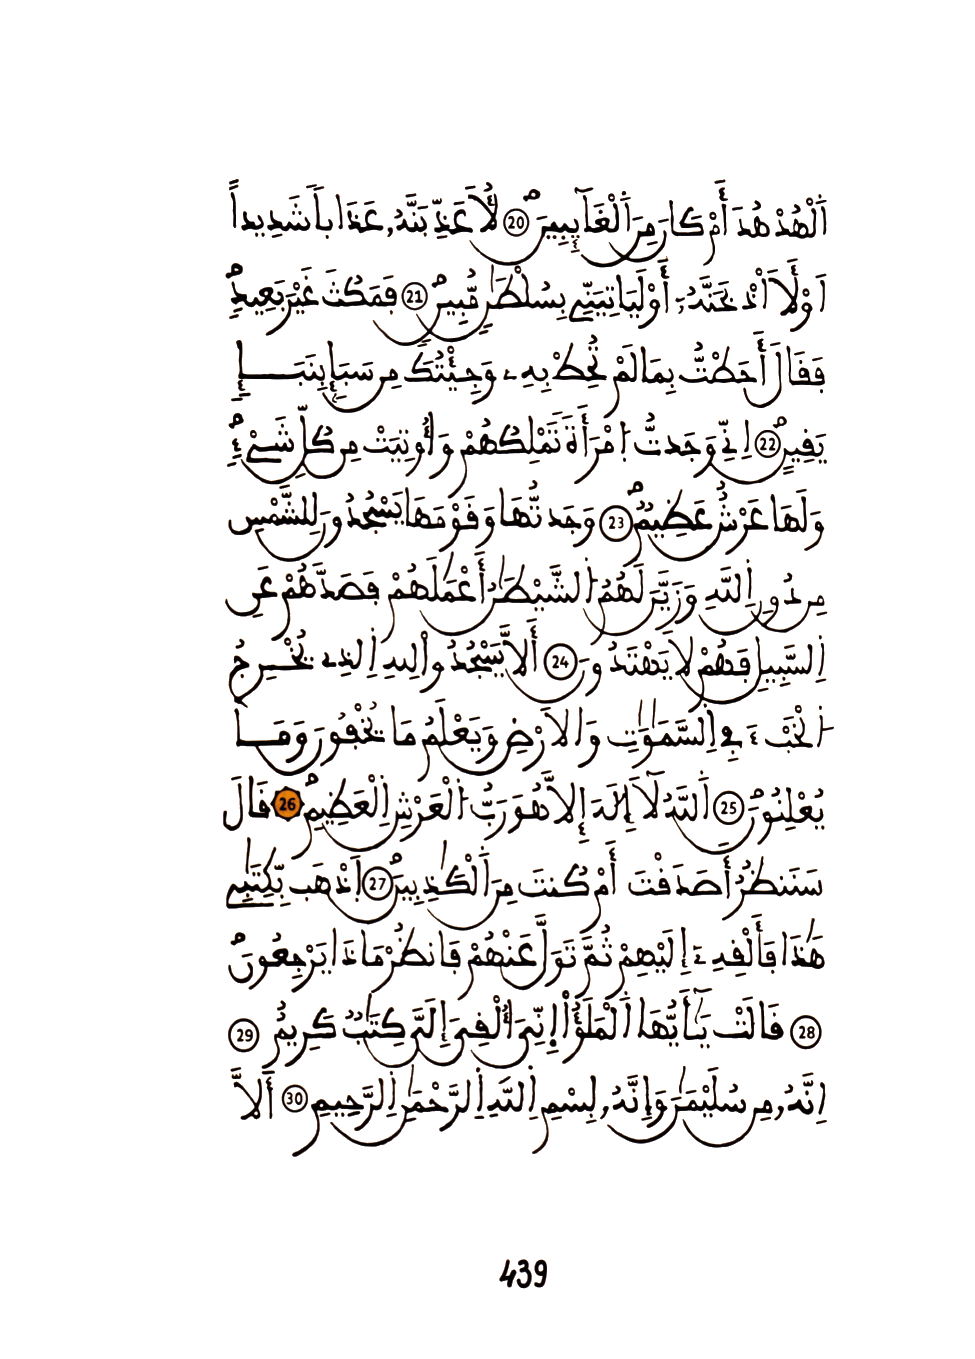 اَ۬لْهُدْهُدَ أَمْ كَانَ مِنَ اَ۬لْغَآئِبِينَ 20 لَأُعَذِّبَنَّهُۥ عَذَاباٗ شَدِيداً
اَوْ لَأَاْذْبَحَنَّهُۥٓ أَوْ لَيَاتِيَنِّے بِسُلْطَٰنٖ مُّبِينٖ 21 فَمَكُثَ غَيْرَ بَعِيدٖ
فَقَالَ أَحَطتُّ بِمَا لَمْ تُحِطْ بِهِۦ وَجِئْتُكَ مِن سَبَإِۢ بِنَبَإٖ
يَقِينٍ 22 اِنِّے وَجَدتُّ اُ۪مْرَأَةٗ تَمْلِكُهُمْ وَأُوتِيَتْ مِن كُلِّ شَےْءٖ
وَلَهَا عَرْشٌ عَظِيمٞ 23 وَجَدتُّهَا وَقَوْمَهَا يَسْجُدُونَ لِلشَّمْسِ
مِن دُونِ اِ۬للَّهِ وَزَيَّنَ لَهُمُ اُ۬لشَّيْطَٰنُ أَعْمَٰلَهُمْ فَصَدَّهُمْ عَنِ
اِ۬لسَّبِيلِ فَهُمْ لَا يَهْتَدُونَ 24 أَلَّا يَسْجُدُواْ لِلهِ اِ۬لذِے يُخْرِجُ
اُ۬لْخَبْءَ فِے اِ۬لسَّمَٰوَٰتِ وَالَارْضِ وَيَعْلَمُ مَا يُخْفُونَ وَمَا
يُعْلِنُونَ 25 اَ۬للَّهُ لَآ إِلَٰهَ إِلَّا هُوَ رَبُّ اُ۬لْعَرْشِ اِ۬لْعَظِيمِ 26 قَالَ
سَنَنظُرُ أَصَدَقْتَ أَمْ كُنتَ مِنَ اَ۬لْكَٰذِبِينَ 27 اَ۪ذْهَب بِّكِتَٰبِے
هَٰذَا فَأَلْقِهِۦٓ إِلَيْهِمْ ثُمَّ تَوَلَّ عَنْهُمْ فَانظُرْ مَاذَا يَرْجِعُونَ
28 قَالَتْ يَٰٓأَيُّهَا اَ۬لْمَلَؤُاْ إِنِّيَ أُلْقِيَ إِلَيَّ كِتَٰبٞ كَرِيمٌ 29
اِنَّهُۥ مِن سُلَيْمَٰنَ وَإِنَّهُۥ بِسْمِ اِ۬للَّهِ اِ۬لرَّحْمَٰنِ اِ۬لرَّحِيمِ 30 أَلَّا
439